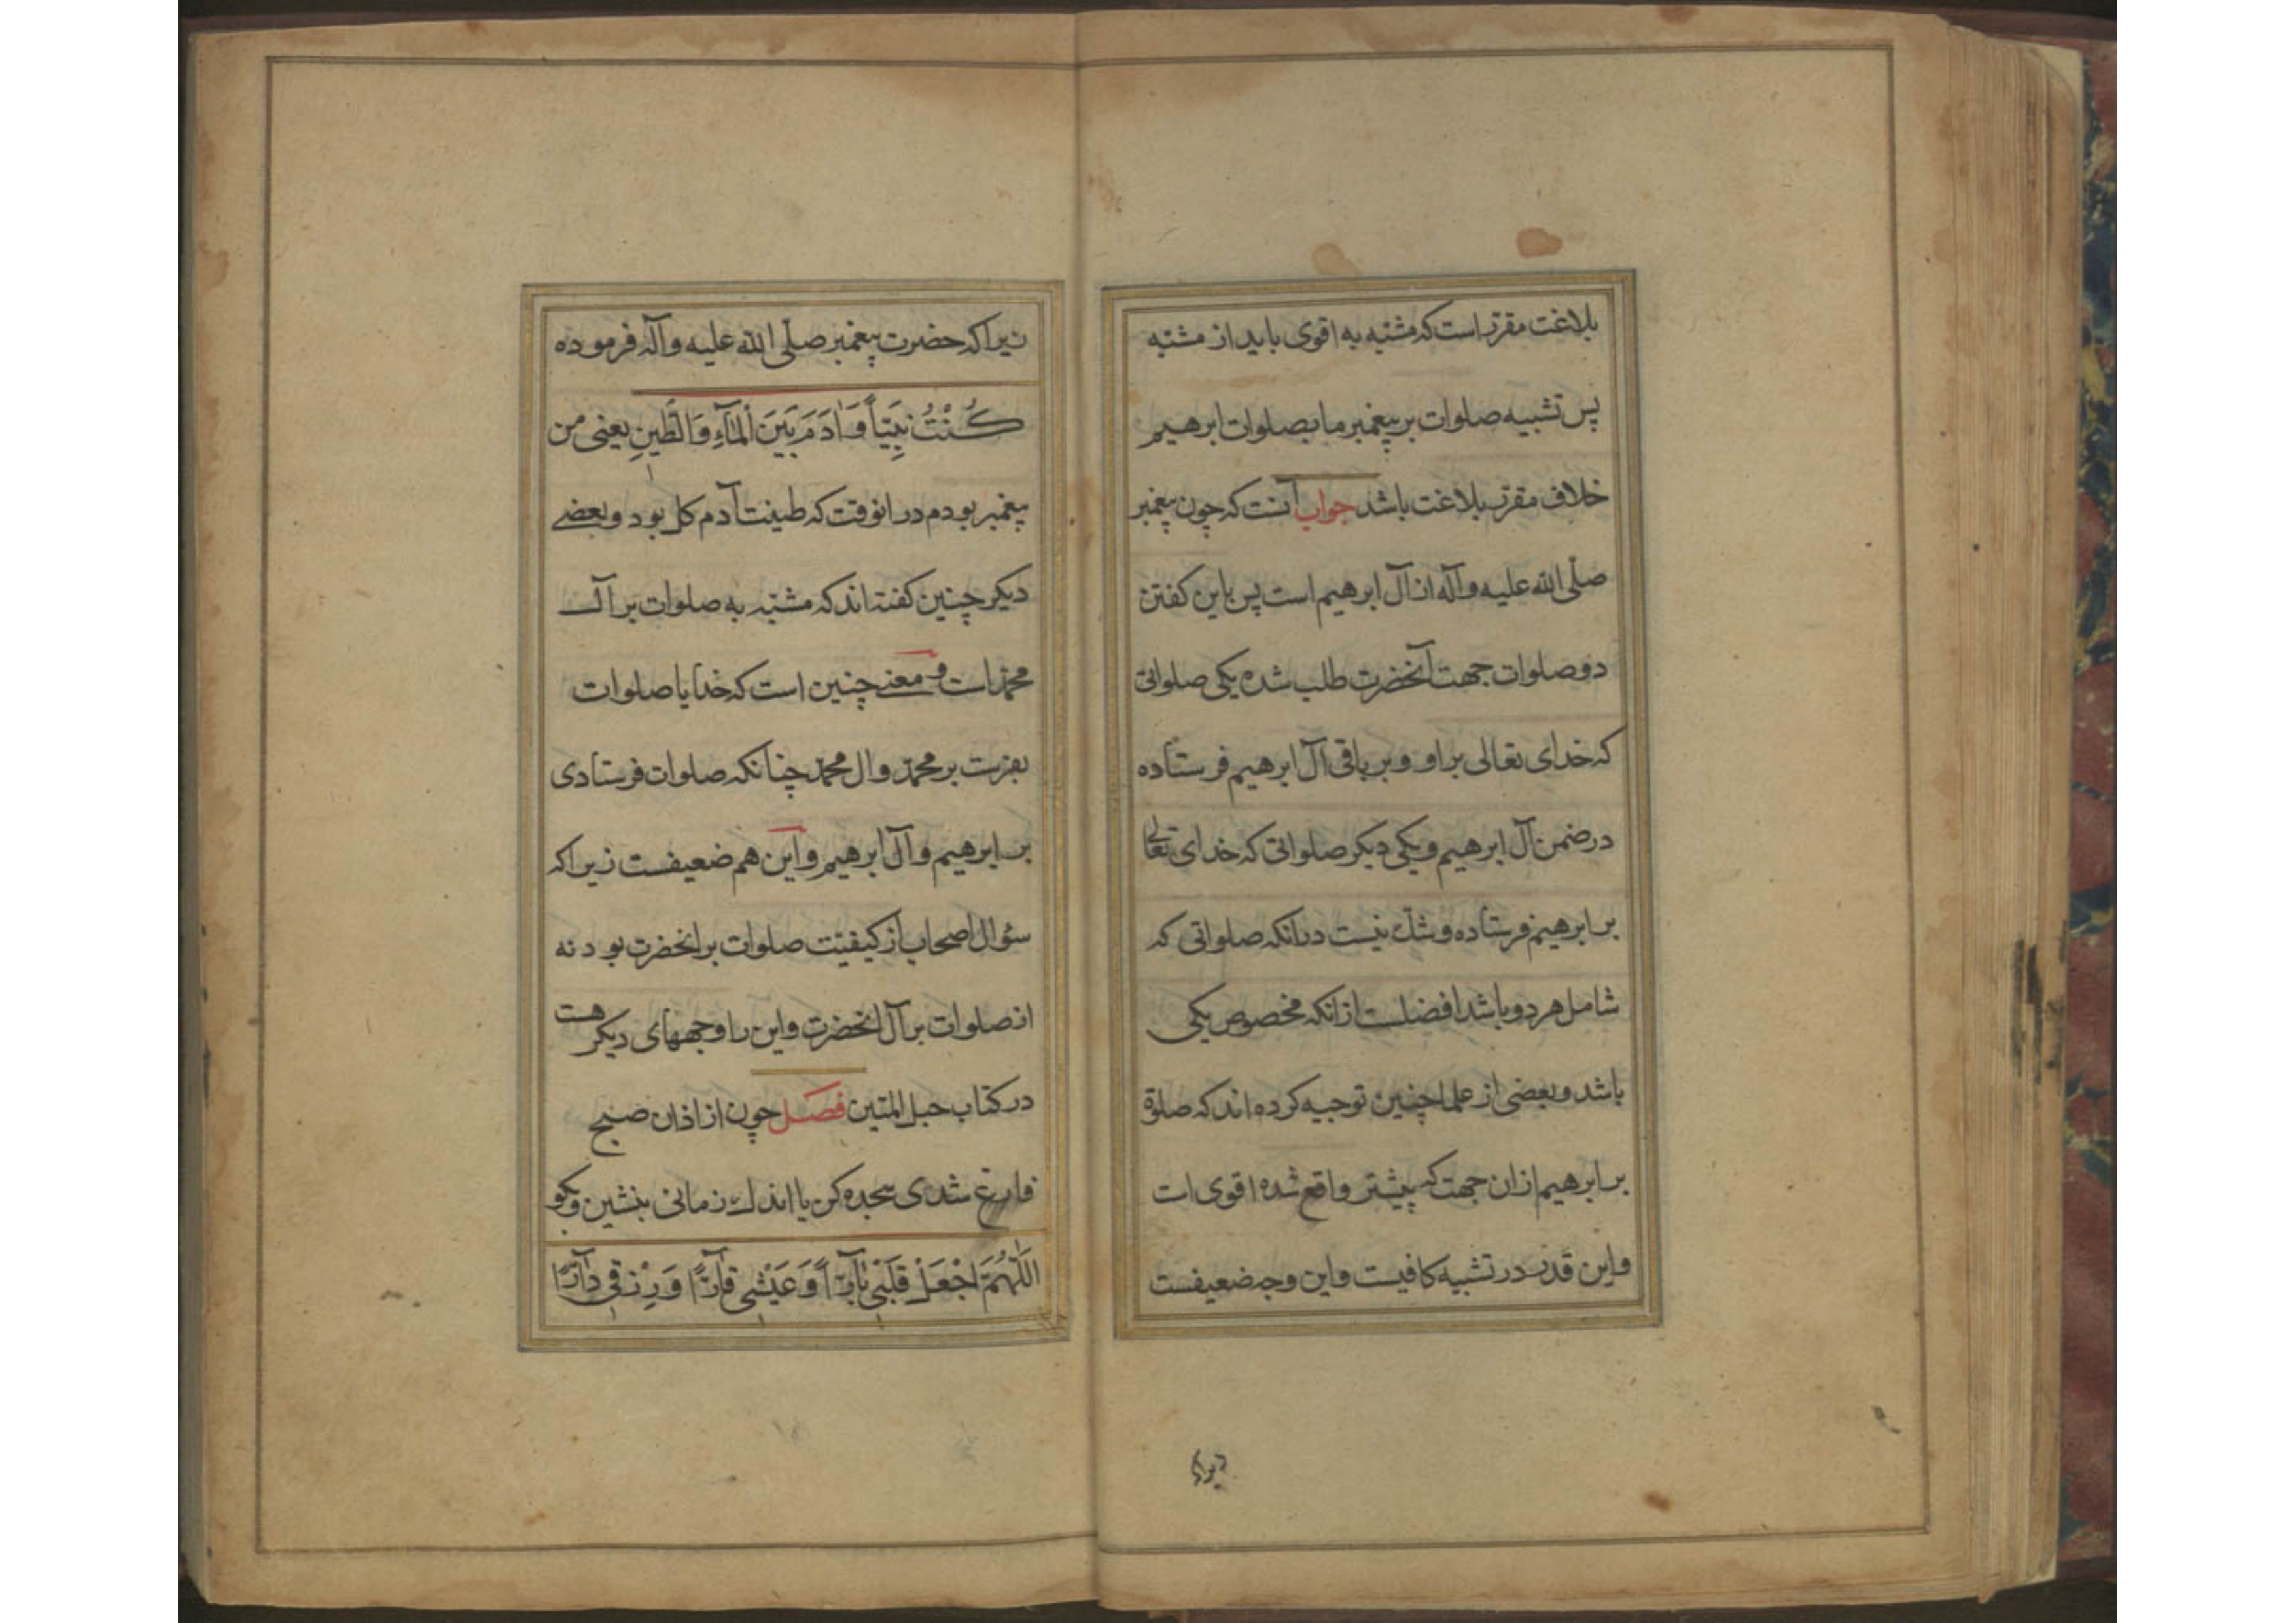 بلاغت مقرّر است که مشبّه به اقوی باید از مشبّه
پس تشبیه صلوات بر پیغمبر ما بصلوات ابرهیم
خلاف مقرّر بلاغت باشد جواب آنست که چون پیغمبر
صلّی الله علیه وآله از آل ابرهیم است پس باین کفتن
دو صلوات جهت آنحضرت طلب شده یکی صلواتی
که خدای تعالی بر او و بر باقی آل ابرهیم فرستاده
در ضمن آل ابرهیم و یکی دیکر صلواتی که خدای تعالی
بر ابرهیم فرستاده و شك نیست در انکه صلواتی که
شامل هر دو باشد افضلست از انکه مخصوص یکی
باشد و بعضی از علما چنین توجیه کرده اند که صلوة
بر ابرهیم ازان جهت که پیشتر واقع شده اقوی است
واین قدر در تشبیه کافیست واین وجه ضعیفست
زیراکه
زیراکه حضرت پیغمبر صلّی الله علیه وآله فرموده
كُنْتُ نَبِيّاً وَاٰدَمَ بَيَنَ الْمَآءِ وَالطّينِ یعنی من
پیغمبر بودم درانوقت که طینت آدم کل بود و بعضی
دیکر چنین کفته اند که مشبّه به صلوات بر آل
محمّد است و معنی چنین است که خدایا صلوات
بفرست بر محمّد وال محمّد چنانکه صلوات فرستادی
بر ابرهیم و آل ابرهیم و این هم ضعیفست زیراکه
سؤال اصحاب از کیفیّت صلوات بر انحضرت بود نه
از صلوات بر آل انحضرت واین را وجههای دیکر هست
در کتاب حبل المتین فصل چون از اذان صبح
فارغ شدی سجده کن یا اندك زمانی بنشین وبکو
اَللّٰهُمَّ اجْعَلْ قَلْبي بٰآرّاً وَعَيْشي قٰآرّاً وَرِزْقي دٰآرّاً